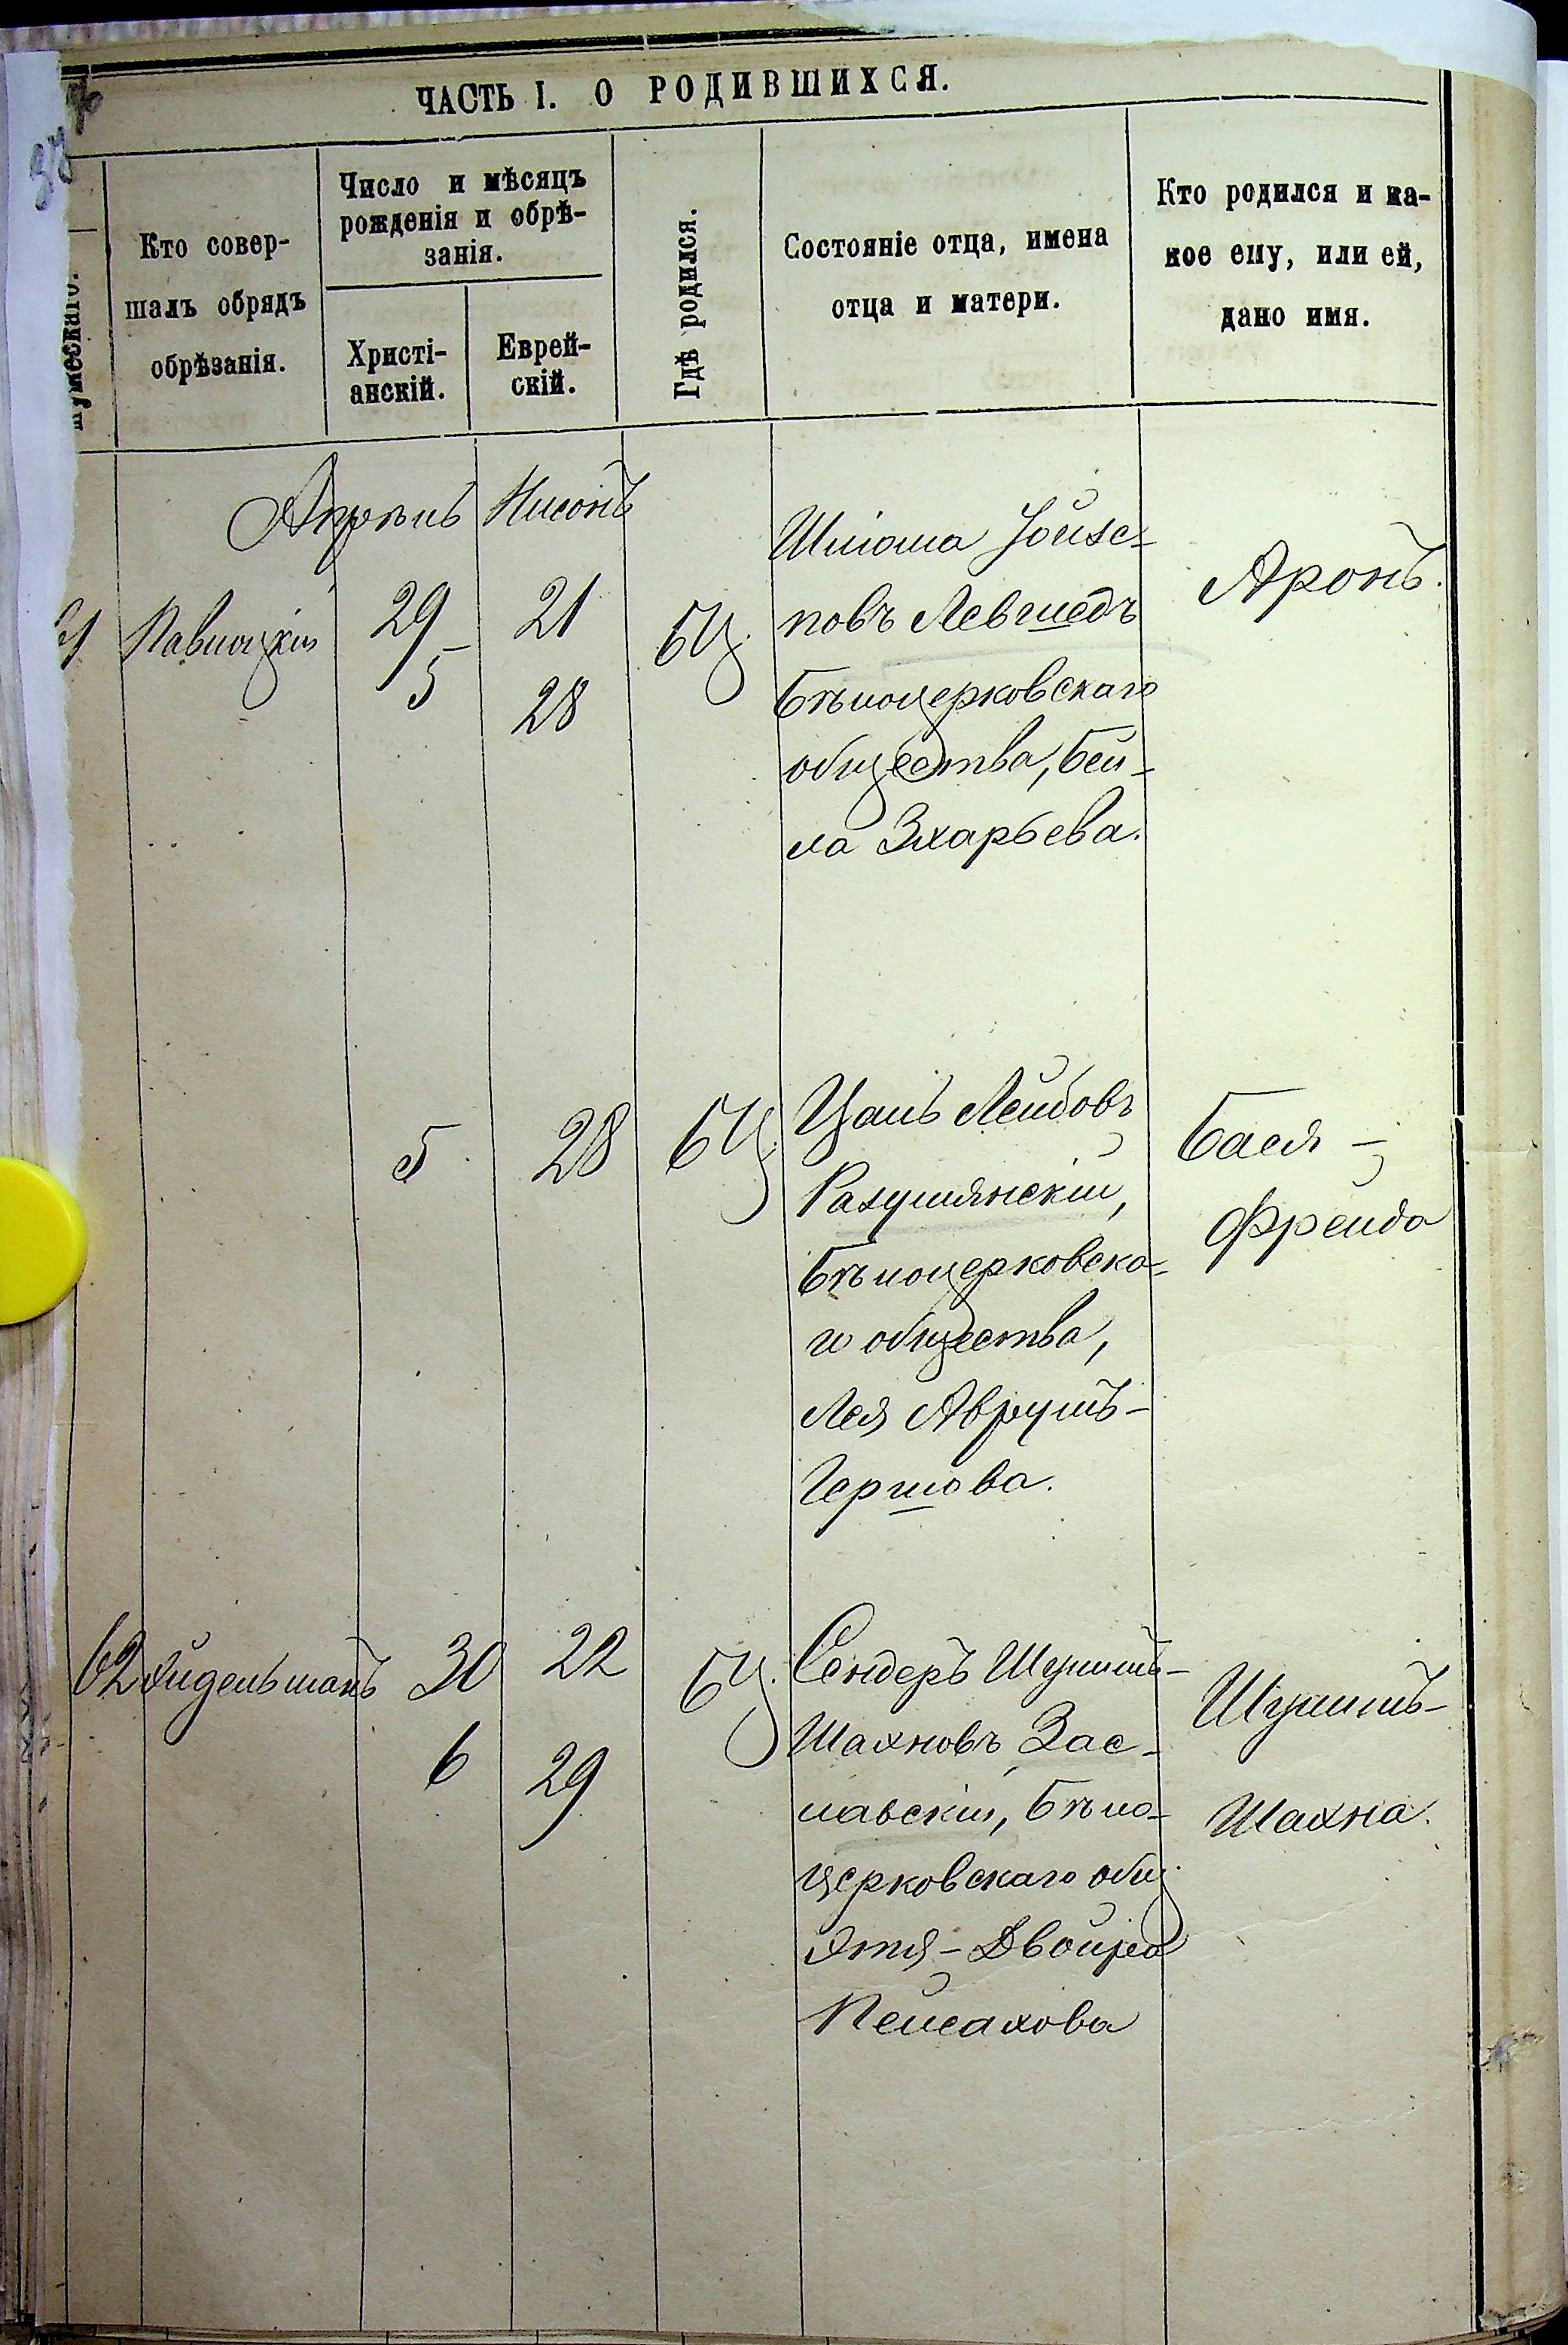 ЧАСТЬ I. О РОДИВШИХСЯ.
Кто совер-
шалъ обрядъ
обрѣзанія.
Число и мѣсяцъ
рожденія и обрѣ-
занія.
Христі-
анскій.
Еврей-
скій.
Гдѣ родился.
Состояніе отца, имена
отца и матери.
Кто родился и ка-
кое ему, или ей,
дано имя.
Апрѣль Нисонъ
Павлоцкій
29 21
5 28
БЦ.
Шлiома Іойсе-
повъ Левшедъ
Бѣлоцерковскаго
общества, Бей-
ла Зхарьева.
Аронъ.
5 28 БЦ.
Цаль Лейбовъ
Разумянскій,
Бѣлоцерковска-
го общества,
Лея Аврумъ-
Гершова.
Бася -
Фрейда
62 Эйдельманъ 30 22 БЦ.
6 29
Сендеръ Шулимъ-
Шахновъ Зас-
лавскій, Бѣло-
церковскаго общ.
Этя-Двойра
Пейсахова
Шулимъ-
Шахна.